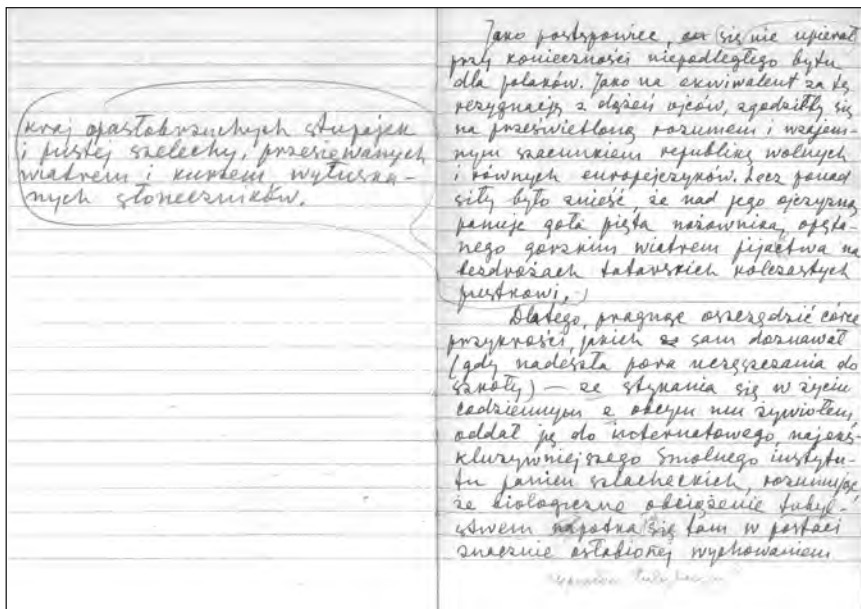 kraj opasłobrzuchych stupajek
i pustej szelechy, przesiewanych
wiatrem i kurzem wyłuska-
nych słoneczników.
Jako postępowiec, on się nie upierał
przy konieczności niepodległego bytu
dla polaków. Jako na ekwiwalent za tę
rezygnację z dążeń ojców, zgodziłby się
na prześwietloną rozumem i wzajem-
nym szacunkiem republikę wolnych
i równych europejczyków. Lecz ponad
siły było znieść, że nad jego ojczyzną
panuje goła pięta nożownika, opęta-
nego gorzkim wiatrem pijactwa na
bezdrożach tatarskich kolczastych
pustkowi.
Dlatego, pragnąc oszczędzić córce
przykrości, jakich sam doznawał
(gdy nadeszła pora uczęszczania do
szkoły) — ze stykania się w życiu
codziennym z obcym mu żywiołem,
oddał ją do internatowego, najeks-
kluzywniejszego Smolnego instytu-
tu panien szlacheckich, rozumując
że biologiczne obciążenie tubyl-
stwem napotka się tam w postaci
znacznie osłabionej wychowaniem